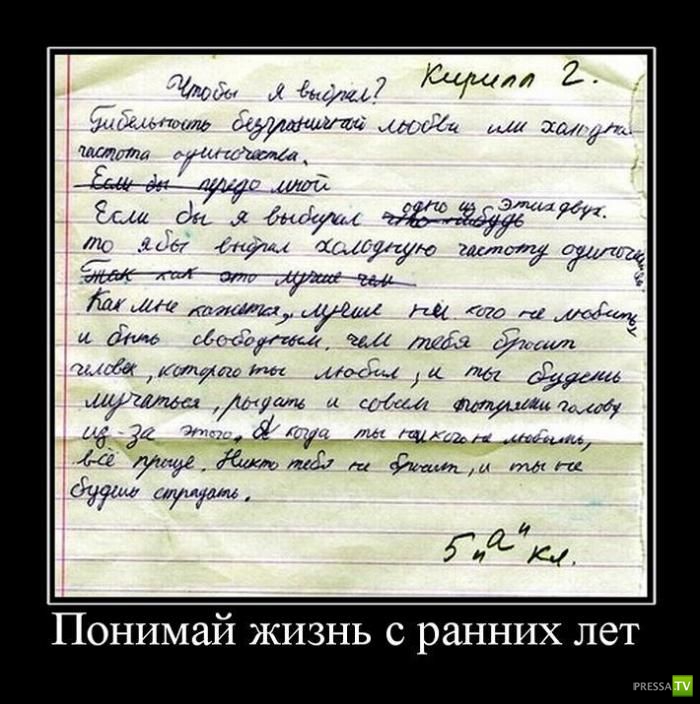 Чтобы я выбрал? Кирилл Г.
Гибельность безграничной любви или холодна
чистота одиночества.
Если бы передо мной
Если бы я выбирал что-нибудь одно из этих двух.
то я бы выбрал холодную чистоту одиночества
Так как это лучше чем
Как мне кажется, лучше ни кого не любить
и быть свободным, чем тебя бросит
человек, которого ты любил, и ты будешь
мучаться, рыдать и совсем потеряешь голову
из-за этого. А когда ты ни кого не любишь,
всё проще. Никто тебя не бросит, и ты не
будешь страдать.
5 "а" кл.
Понимай жизнь с ранних лет
PRESSA.TV